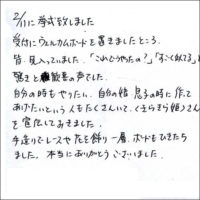 2/11に挙式致しました
受付にウェルカムボードを置きましたところ、
皆、見入っていました。「これどうやったの?」「すごく似てる」
驚きと歓喜の声でした。
自分の時もやりたい、自分の娘、息子の時に作って
あげたいという人もたくさんいて、くさらぎ姫)さん
を宣伝しておきました。
手造りでレースや花を飾り一層、ボードもひきたち
ました。本当にありがとうございました。